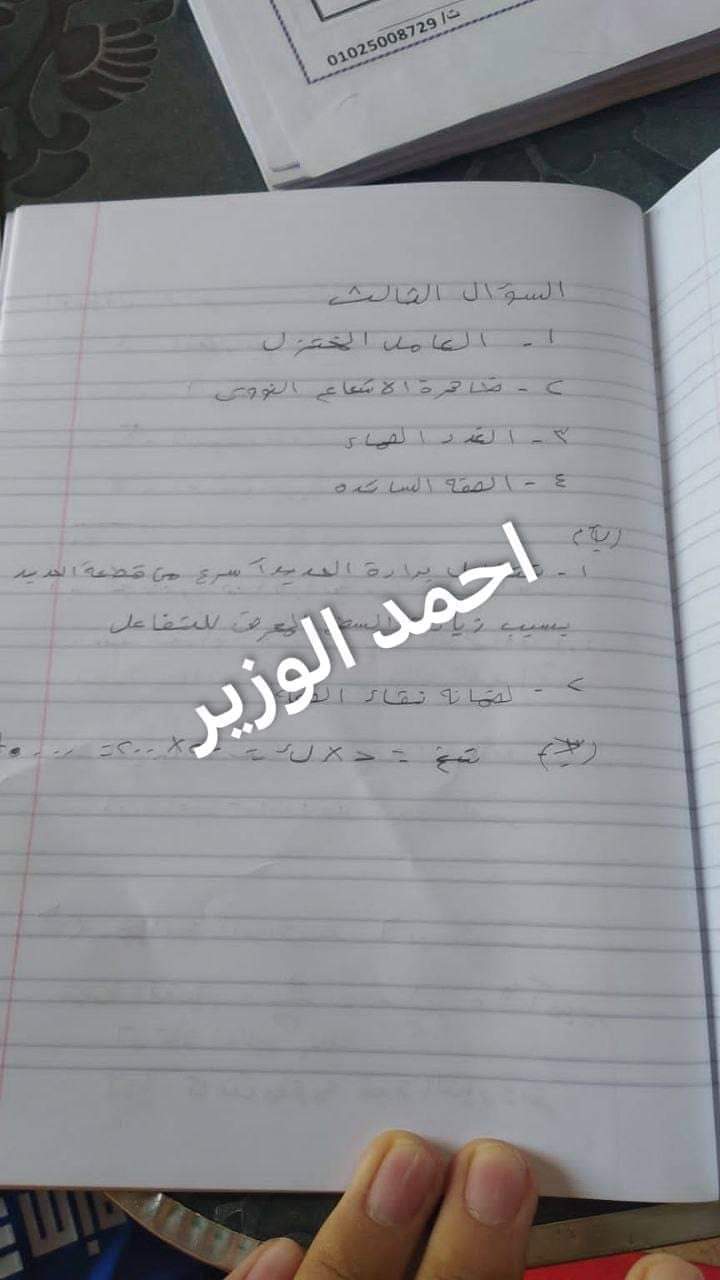 ت/ 01025008729
السؤال الثالث
١ - العامل المختزل
٢ - ظاهرة الاشعاع النووى
٣ - الغدد الصماء
٤ - الصفة السائده
(ب)
١ - برادة الحديد أسرع من قطعة الحديد
بسبب السطح المعرض للتفاعل
٢ - لضمانه نقاء
شغ = ت × ك =
احمد الوزير